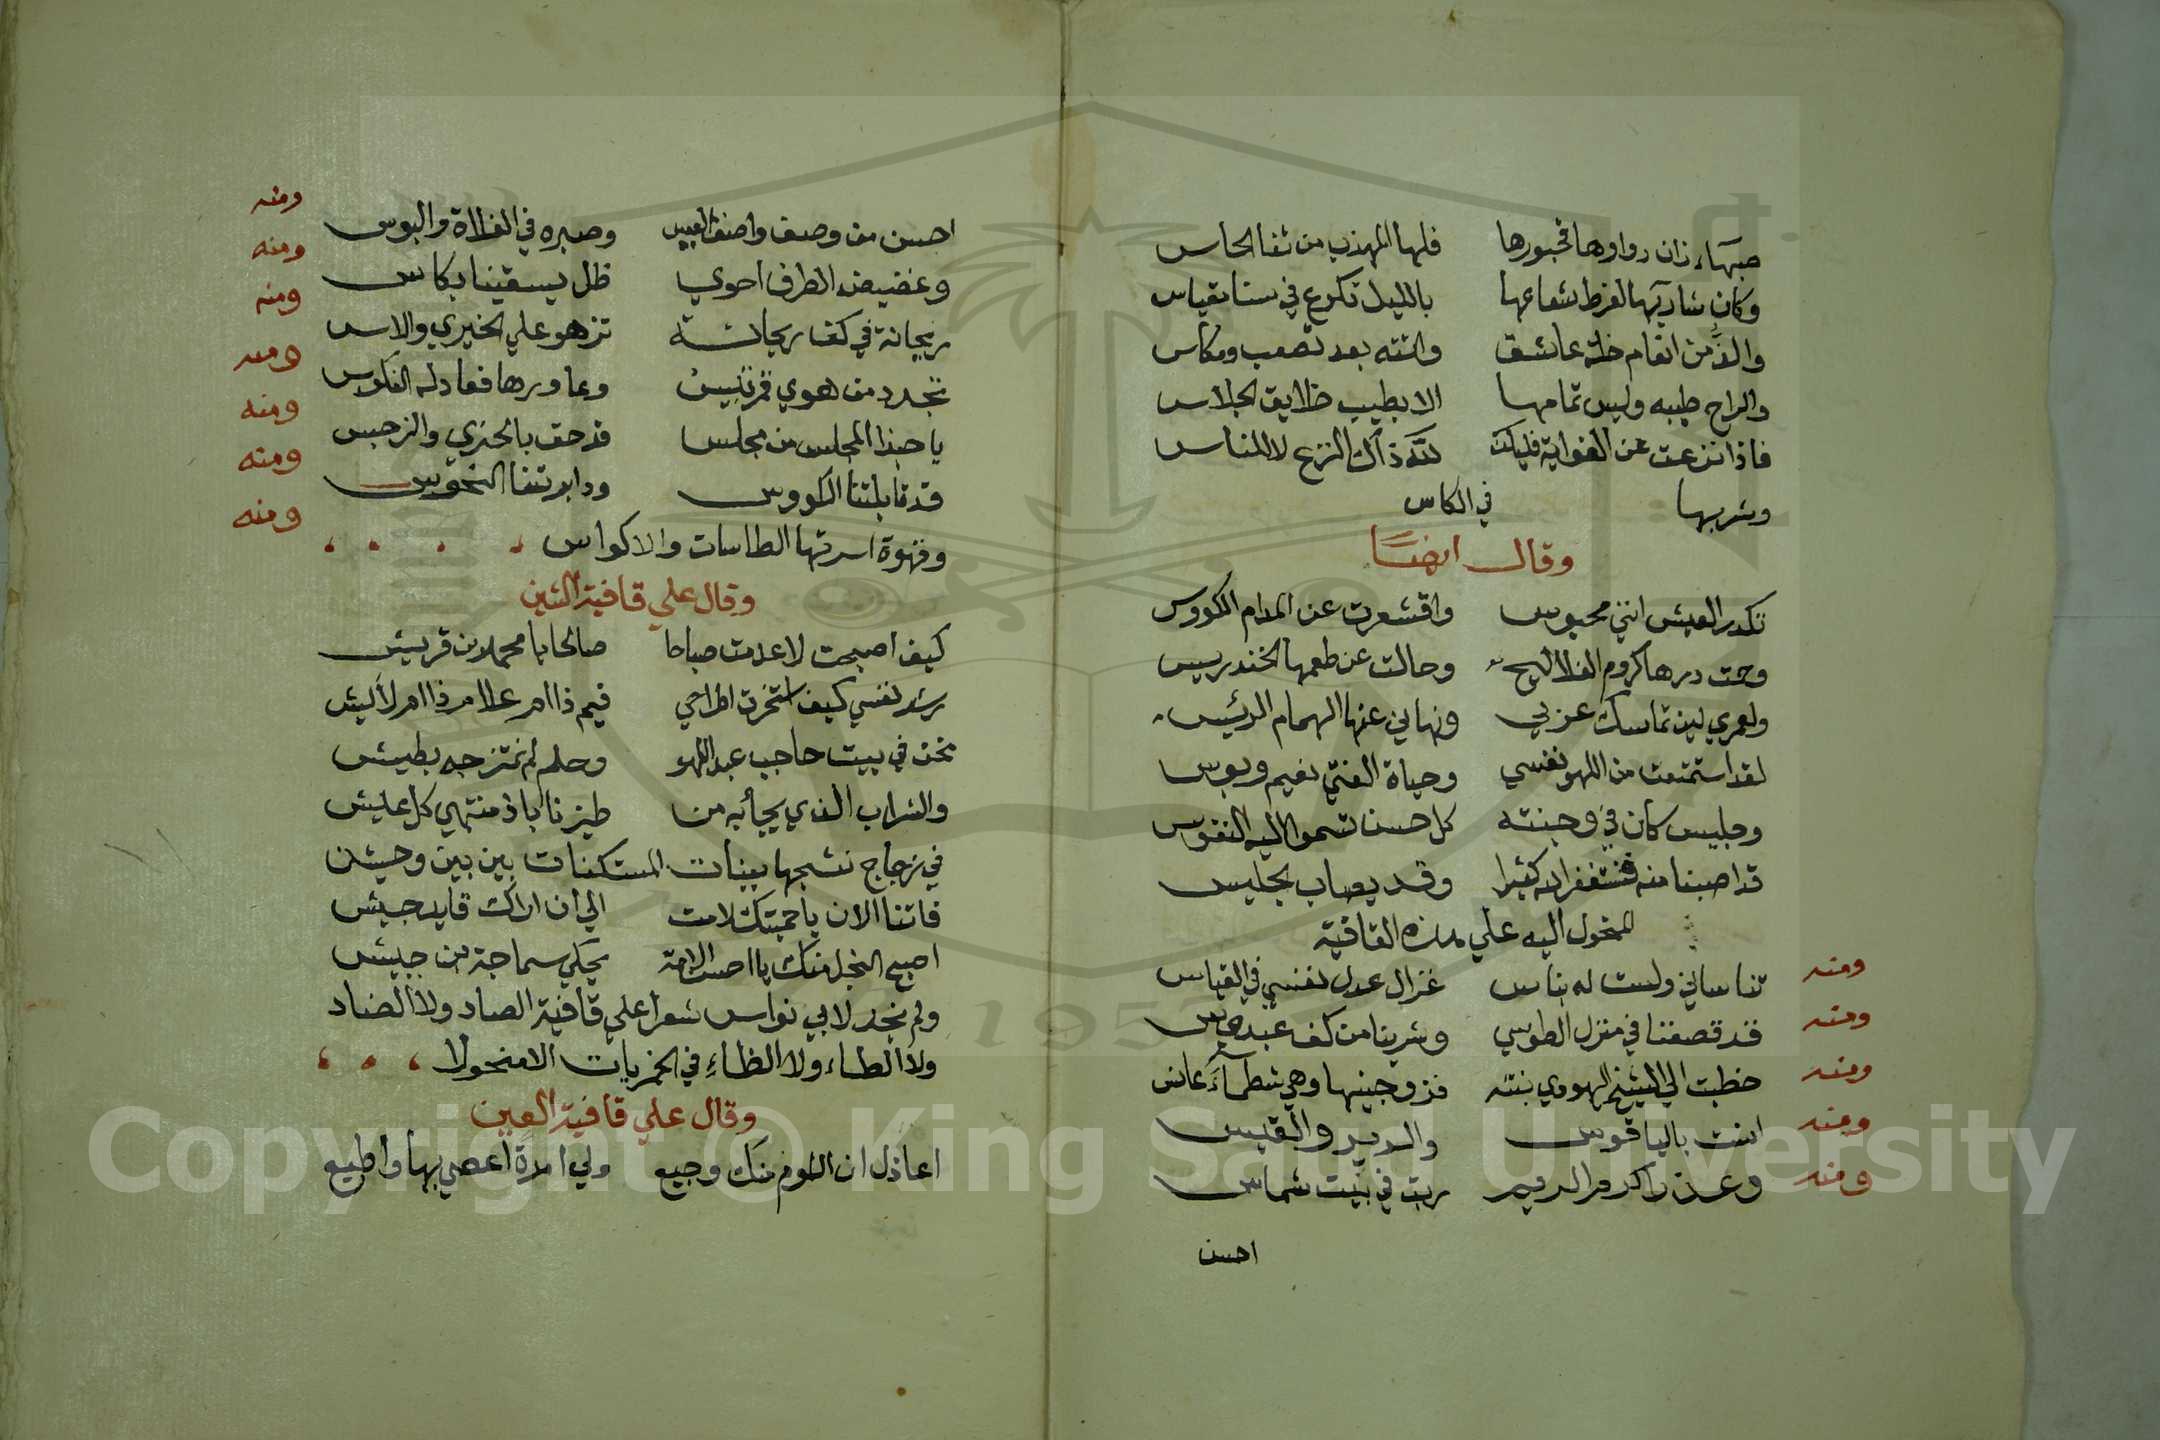 صهباء زان رواوها مخبورها فلها المهذب من ثنا الحاس
وكان شاربها لفرط شعاعها بالليل تكرع في سنا مقياس
والذ من انعام خلة عاشق والته بعد تصعب ومكاس
والراح طيبه وليس تمامها الا بطيب خلايق الجلاس
فاذا نزعت عن الغواية فليكن لله ذاك النزع لا للناس
وشربها في الكاس
وقال ايضا
تكدر العيش انني محبوس واقشعرت عن المدام الكووس
وحمت درها كروم الفلاليح وحالت عن طعمها الخندريس
ولعمري لين تماسك عزبي ونهاني عنها الهمام الرئيس
لقد استمتعت من اللهو نفسي وحياة الفتي نعيم وبوس
وجليس كان في وجنته كل حسن تسموا اليه النفوس
قد اصبنا منه فنستغفر الله كثيرا وقد يصاب الجليس
المنحول اليه علي هذه القافية
ومنه تناساني ولست له بناس غزال عدل نفسي في القياس
ومنه قد قصفنا في منزل الطوسي وشربنا من كف عبدوس
ومنه خطبت الي الشيخ اليهودي بنته فزوجنيها وهي شمطاء عانس
ومنه انت باليا قوس والدير والقيس
ومنه وعدن اكرم الريم ربت في بيت شماس
احسن
ومنه احسن من وصف واصف العيس وصبره في الفلاة والبوس
ومنه وغضيض الطرف احوي ظل يسقينا بكاس
ومنه ريحانة في كف ريحانة تزهو علي الخيري والاس
ومنه تجدد من هوي قرنيس وعاورها فعادله النكوس
ومنه يا حبذا المجلس من مجلس قد حف بالخيري والنرجس
ومنه قد قابلتنا الكووس ودابرتنا النحوس
ومنه وقهوة اسرتها الطاسات والاكواس
وقال علي قافية الشين
كيف اصبحت لا عدمت صباحا صالحا يا محمد بن قريش
رشد نفسي كيف استخرت اطراحي فيم ذا ام علام ذا ام لايش
نحن في بيت حاجب عبد اللهو وحلم لم نمتزجه بطيش
والشراب الذي يجأ به من طيزناباذ منتهي كل عيش
في زجاج نشجها ببنات المستكنات بين بين وحيش
فاتنا الان يا حميتك لامت الي ان اراك قايد جيش
اصبح النجل منك يا احسن الامة يحكي سماجة من جبيش
ولم نجد لابي نواس شعرا علي قافية الصاد ولا الضاد
ولا الطاء ولا الظاء في الخمريات الا منحولا
وقال علي قافية العين
اعاذل ان اللوم منك وجيع ولي امرة اعصي بها واطيع
Copyright © King Saud University
1957